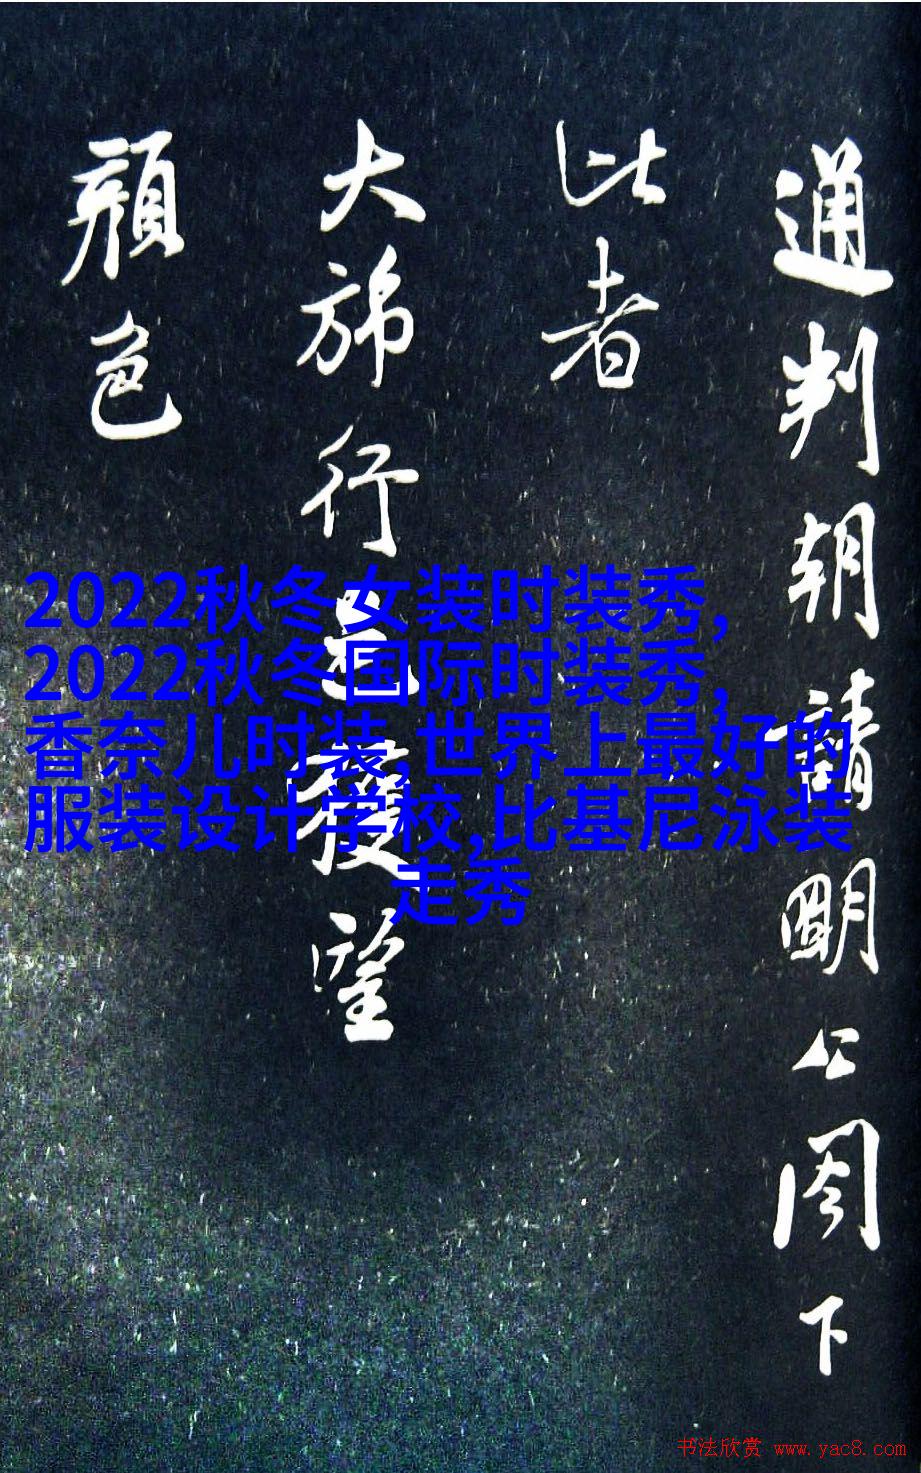 通判朝請明公閣下
此者
大旆行望
顔色
2022秋冬女装时装秀,
2022秋冬国际时装秀,
香奈儿时装,世界上最好的
服装设计学校,比基尼泳装
走秀
书法欣赏 www.yac8.com